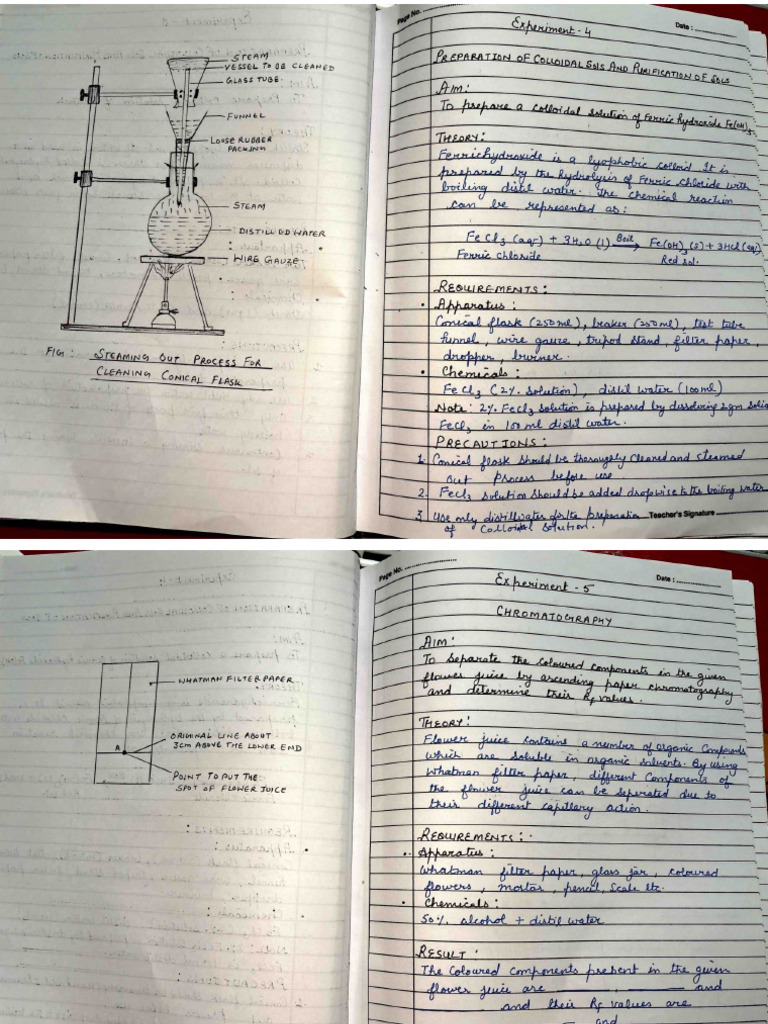 STEAM
VESSEL TO BE CLEANED
GLASS TUBE
FUNNEL
LOOSE RUBBER
PACKING
STEAM
DISTILLED WATER
WIRE GAUZE
FIG: STEAMING OUT PROCESS FOR
CLEANING CONICAL FLASK
Page No.
Date :
Experiment - 4
PREPARATION OF COLLOIDAL SOLS AND PURIFICATION OF SOLS
AIM:
To prepare a colloidal solution of Ferric hydroxide Fe(OH)3.
THEORY:
Ferrichydroxide is a lyophobic colloid. It is
prepared by the hydrolysis of Ferric chloride with
boiling distil water. The chemical reaction
can be represented as:
FeCl3 (aq) + 3H2O (l) Boil → Fe(OH)3(s) + 3HCl (aq)
Ferric chloride Red sol.
REQUIREMENTS:
• Apparatus:
Conical flask (250ml), beaker (250ml), test tube
funnel, wire gauze, tripod stand, filter paper,
dropper, burner.
• Chemicals:
FeCl3 (2% solution), distil water (100ml)
Note: 2% FeCl3 solution is prepared by dissolving 2gm solid
FeCl3 in 100ml distil water.
PRECAUTIONS:
1. Conical flask should be thoroughly cleaned and steamed
out process before use.
2. FeCl3 solution should be added dropwise to the boiling water
3. Use only distil water for the preparation
of colloidal solution.
Teacher's Signature
Page No.
Date :
Experiment - 5
CHROMATOGRAPHY
WHATMAN FILTER PAPER
ORIGINAL LINE ABOUT
3cm ABOVE THE LOWER END
A
POINT TO PUT THE
SPOT OF FLOWER JUICE
AIM:
To separate the coloured components in the given
flower juice by ascending paper chromatography
and determine their Rf values.
THEORY:
Flower juice contains a number of organic compounds
which are soluble in organic solvents. By using
whatman filter paper, different components of
the flower juice can be seperated due to
their different capillary action.
REQUIREMENTS:
• Apparatus:
whatman filter paper, glass jar, coloured
flowers, mortar, pencil, scale etc.
• Chemicals:
50% alcohol + distil water
RESULT:
The coloured components present in the given
flower juice are ________, ________ and
________ and their Rf values are
________ and